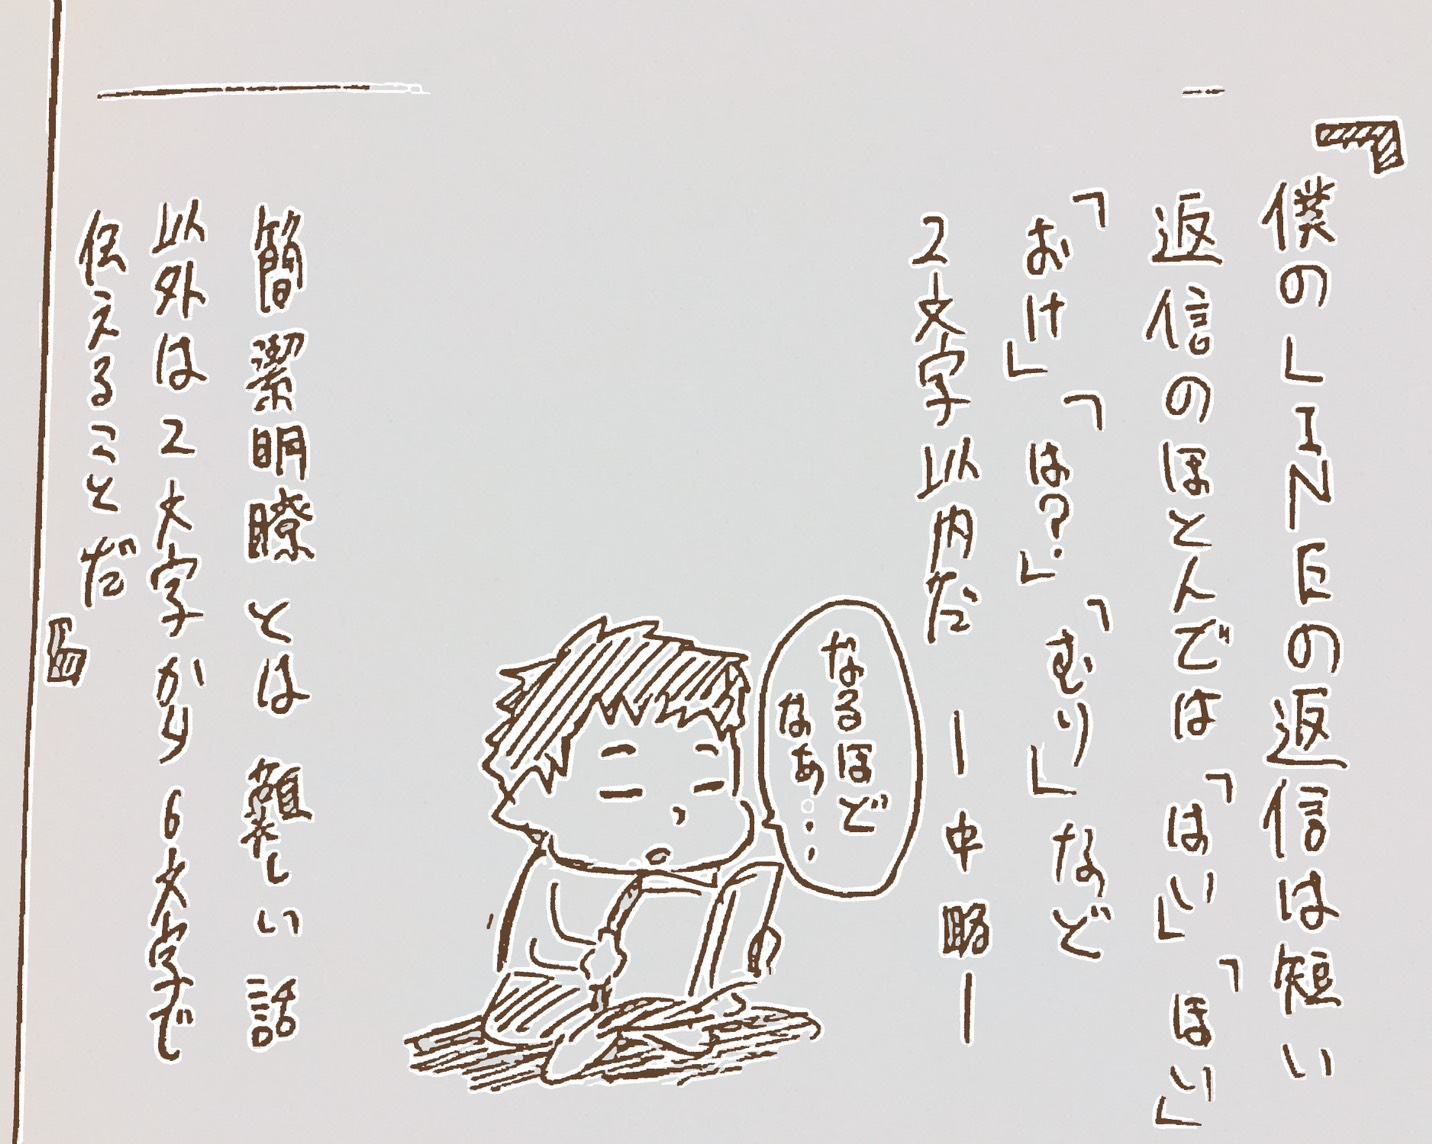 『僕のLINEの返信は短い
返信のほとんどは「はい」「ほい」
「おけ」「は?」「むり」など
2文字以内だ ー中略ー
なるほど
なぁ…
簡潔明瞭とは難しい話
以外は2文字から6文字で
伝えることだ』